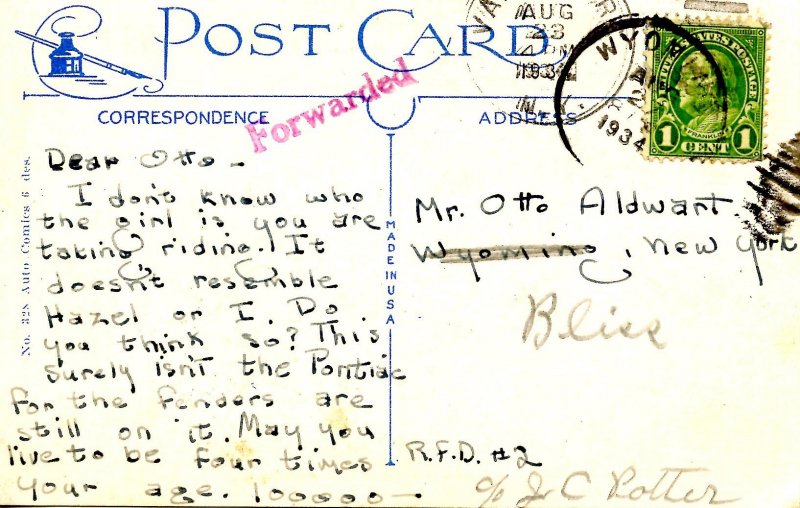 POST CARD
CORRESPONDENCE
Forwarded
ADDRESS
AUG
23
4 PM
1934
N.Y.
WYO
1934
UNITED STATES POSTAGE
FRANKLIN
1 CENT 1
Dear Otto -
I don't know who
the girl is you are
taking riding. It
doesn't resemble
Hazel or I. Do
you think so? This
surely isn't the Pontiac
for the fenders are
still on it. May you
live to be four times
your age. 100000 -
No. 328 Auto Comics 6 des.
MADE IN USA
Mr. Otto Aldwart
Wyoming, New York
Bliss
R.F.D. #2
c/o J C Potter